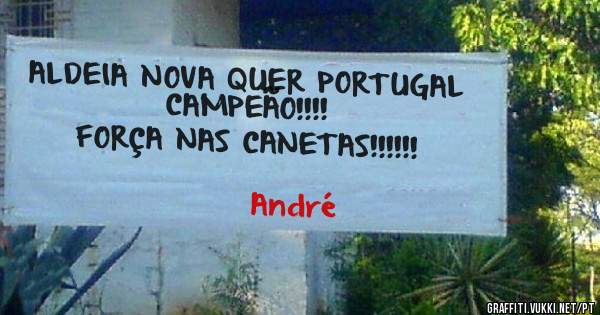 ALDEIA NOVA QUER PORTUGAL
CAMPEÃO!!!!
FORÇA NAS CANETAS!!!!!!
André
GRAFFITI.VUKKI.NET/PT